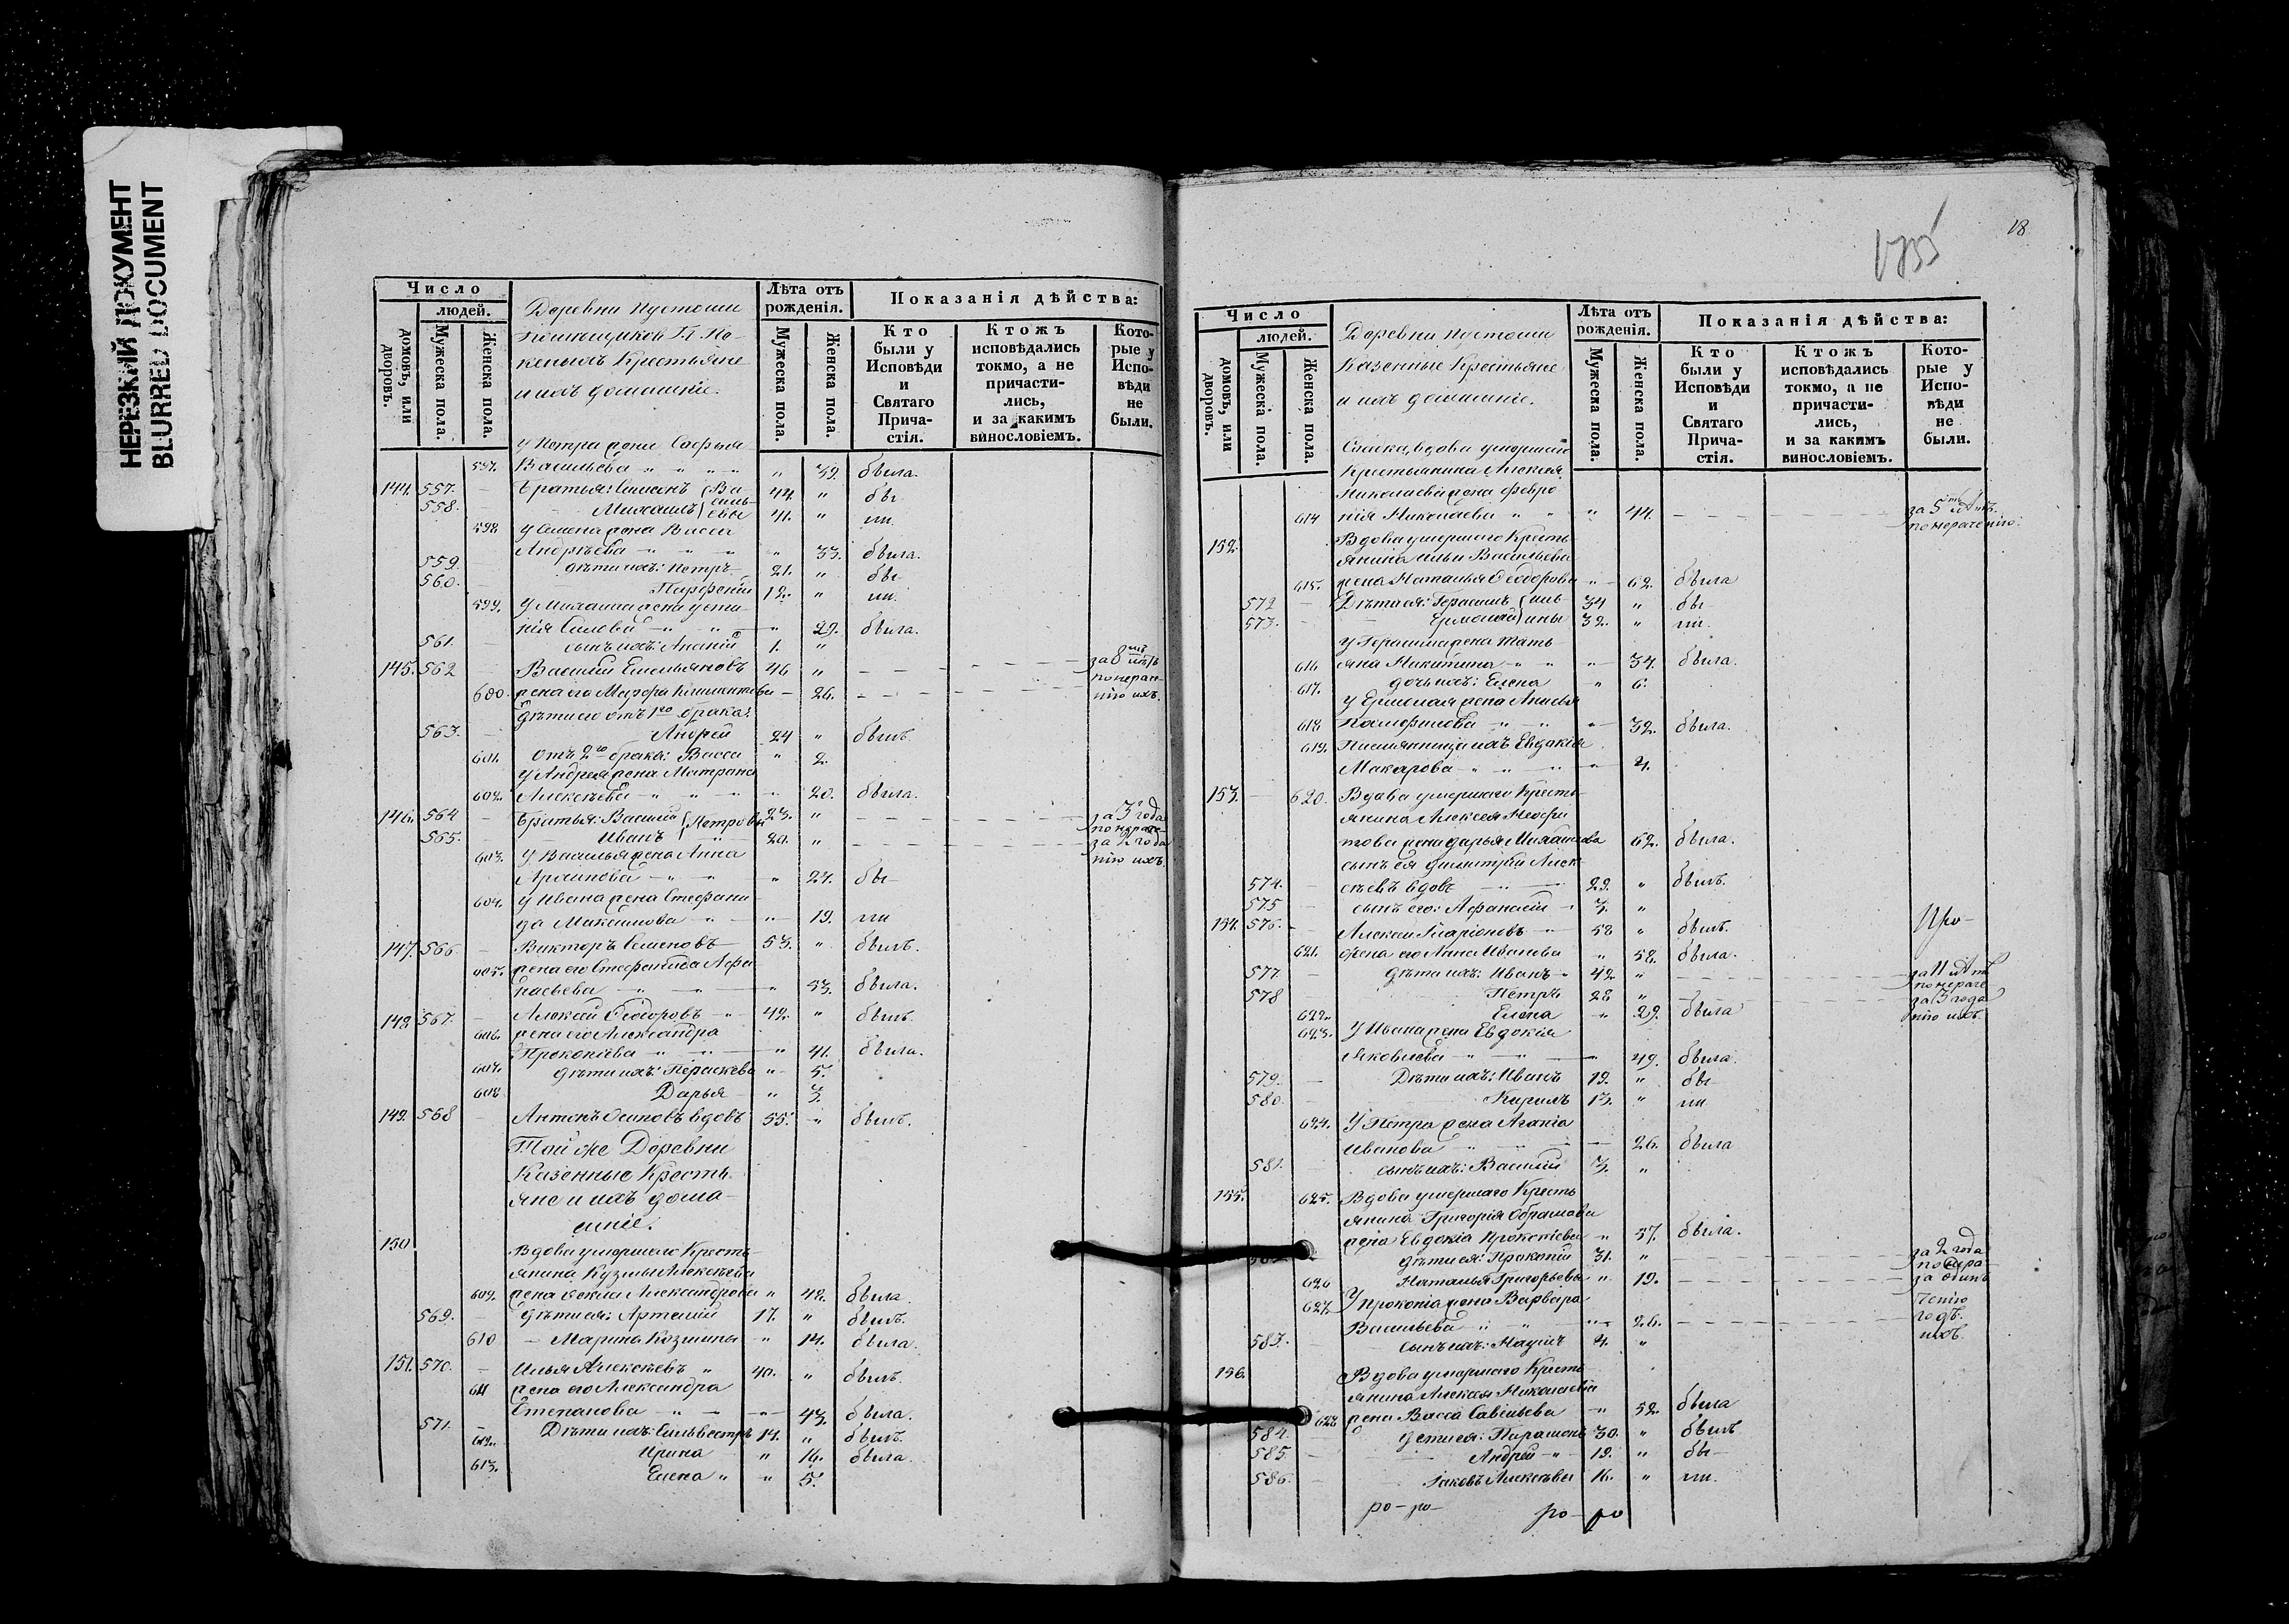 НЕРЕЗКИЙ ДОКУМЕНТ
BLURRED DOCUMENT
Число
людей.
домовъ, или дворовъ.
Мужеска пола.
Женска пола.
Деревни Пустоши
Крестьяне
и ихъ домашніе.
Лѣта отъ рожденія.
Мужеска пола.
Женска пола.
Показанія дѣйства:
Кто были у Исповѣди и Святаго Прича-стія.
Ктожъ исповѣдались токмо, а не причасти-лись, и за какимъ винословіемъ.
Кото-рые у Испо-вѣди не были.
У Петра жена Софья
597. Васильева " " " " " 39. была.
144. 557. — Братья: Симеонъ (Ва- 44. " бы
558. — Михаилъ) силь-евы 41. " ли.
598 У Семена жена Васса
Андрѣева " " " " 33. была.
559. — дѣти ихъ: Петръ 21. " бы
560. — Парфеній 12. " ли.
599. У Михаила жена Усти-
нія " " " 29. была.
561. — сынъ ихъ: 1. "
145. 562 — Василій Емельяновъ 46 " — — — за 8 лѣтъ
600. жена его Марфа Климентова — 26. — — — по нераче-нію ихъ.
дѣти его отъ 1го брака:
563. — Андрей 24 " былъ.
601. отъ 2го брака: Васса " 2.
У Андрея жена Матрона
602. Алексѣева " " " 20. была.
146. 564 — Братья: Василій (Петровы 23. " — — — за 3 года
по нераче-
565. — Иванъ 20. " — — — за 2 года
нію ихъ.
603. У Василья жена Анна
" " " 27. бы
604. У Ивана жена Стефани-
да Максимова " " 19. ли
147. 566 — Викторъ Семеновъ 53. " былъ.
605. жена его Стефанида Афа-
насьева " " " 53. была.
148. 567. — Алексѣй Ѳедоровъ " 42. " былъ.
606. жена его Александра
Прокопіева " " " 41. была.
607. дѣти ихъ: Параскева " 5.
608 Дарья " 3.
149. 568 — Антонъ Осиповъ вдовъ 55. " былъ.
Той же Деревни
Казенные Кресть-
яне и ихъ дома-
шніе.
150 Вдова умершаго Кресть-
янина Кузмы Алексѣева
609. жена Александрова " 48. была.
569. — дѣти ея: Артемій 17. " былъ.
610 — Марина Козмины " 14. была.
151. 570. — Илья Алексѣевъ " 40. " былъ.
611 жена его Александра
Степанова " " " 43. была.
571. — Дѣти ихъ: Сильвестръ 19. " былъ.
612. Ирина " 16. была.
613. Елена " " 5.
18
Число
людей.
домовъ, или дворовъ.
Мужеска пола.
Женска пола.
Деревни Пустоши
Казенные Крестьяне
и ихъ домашніе.
Лѣта отъ рожденія.
Мужеска пола.
Женска пола.
Показанія дѣйства:
Кто были у Исповѣди и Святаго Прича-стія.
Ктожъ исповѣдались токмо, а не причасти-лись, и за какимъ винословіемъ.
Кото-рые у Испо-вѣди не были.
вдова умершаго
Крестьянина Алексѣя
Николаева жена Февро-
614 нія Николаева " " " 44. — — — за 5 лѣтъ
по нераченію.
152. Вдова умершаго Кресть-
янина Ильи Васильева
615. жена Наталья Ѳеодорова " 62. была
572 — Дѣти ея: Герасимъ (Иль- 34 " бы
573. — Ермолай) ины 32. " ли.
У Герасима жена Тать-
616 яна Никитина " " " 34. была.
617. дочь ихъ: Елена " 6.
У Ермолая жена Анисья
618 " " " 32. была.
619. ихъ Евдокія
Макарова " " " " 4.
153. — 620. Вдова умершаго Кресть-
янина Алексѣя
жена Дарья Михайлова 62. была.
сынъ ея Димитрій Алек-
574. — сѣевъ вдовъ " 29. " былъ.
575 — сынъ его: Афанасій " 3. "
154. 576. — Алексѣй Иларіоновъ " 58 " былъ.
621. жена его Анна Иванова " 58. была.
577. — дѣти ихъ: Иванъ " 42. " — — — за 11 лѣтъ
по нераче
578 — Петръ 28 " — — — за 3 года
622. Елена " 29. была
нію ихъ.
623. У Ивана жена Евдокія
Яковлева " " " 49. была.
579. — Дѣти ихъ: Иванъ 19. " бы
580. — Кирилъ 13. " ли
624. У Петра жена Агапія
Иванова " " " 26. была
581. — сынъ ихъ: Василій 3. "
155. 625. Вдова умершаго Кресть-
янина Григорія
жена Евдокія Прокопіева " 57. была.
дѣти ея: Прокопій 31. " — — — за 2 года
по нера-
626 Наталья Григорьевы " 19. — — — за одинъ
627. У Прокопія жена Варвара
ченію
Васильева " " " 26. — — — годъ.
583. — сынъ ихъ: 4. "
ихъ.
156. Вдова умершаго Кресть-
янина Алексѣя Николаева
628 жена Васса Савельева " 52. была
584. — дѣти ея: Парамонъ 30. " былъ
585. — Андрей " 19. " бы
586. — Іаковъ Алексѣевы 16. " ли.